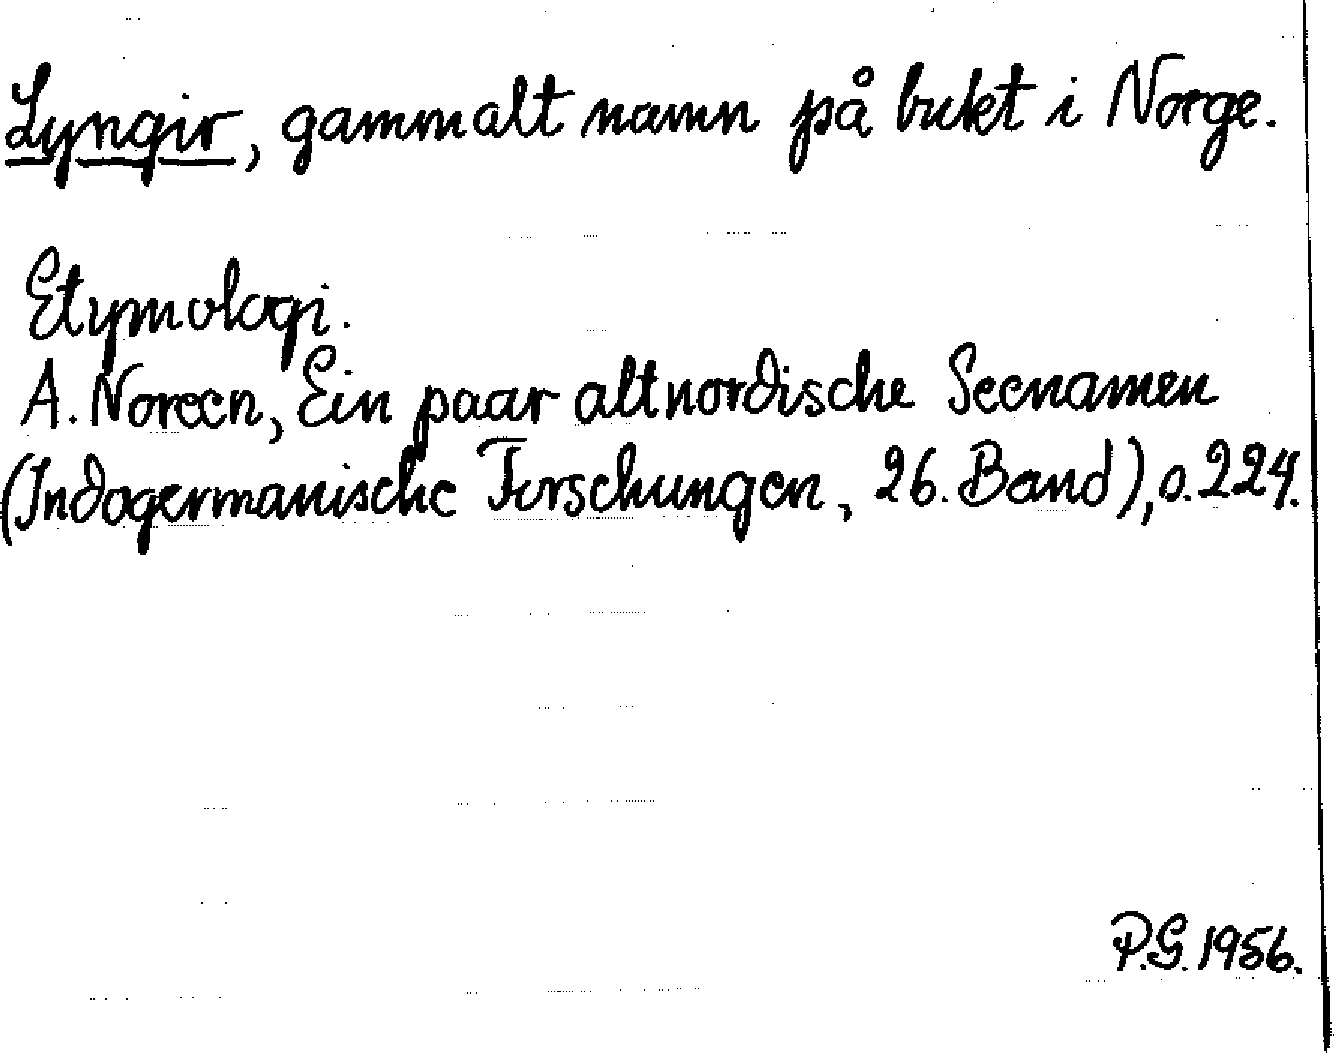 Lyngir, gammalt namn på bukt i Norge.
Etymologi.
A. Noreen, Ein paar altnordische Seenamen
(Indogermanische Forschungen, 26. Band), s. 224.
P.G. 1956.